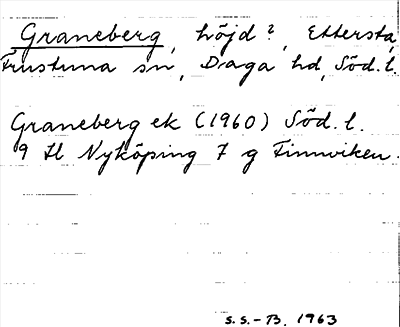 Graneberg, höjd?, Ettersta,
Frustuna sn, Daga hd, Söd. l.
Graneberg ek (1960) Söd. l.
9 H Nyköping 7 g Finnviken.
S.S.-B. 1963